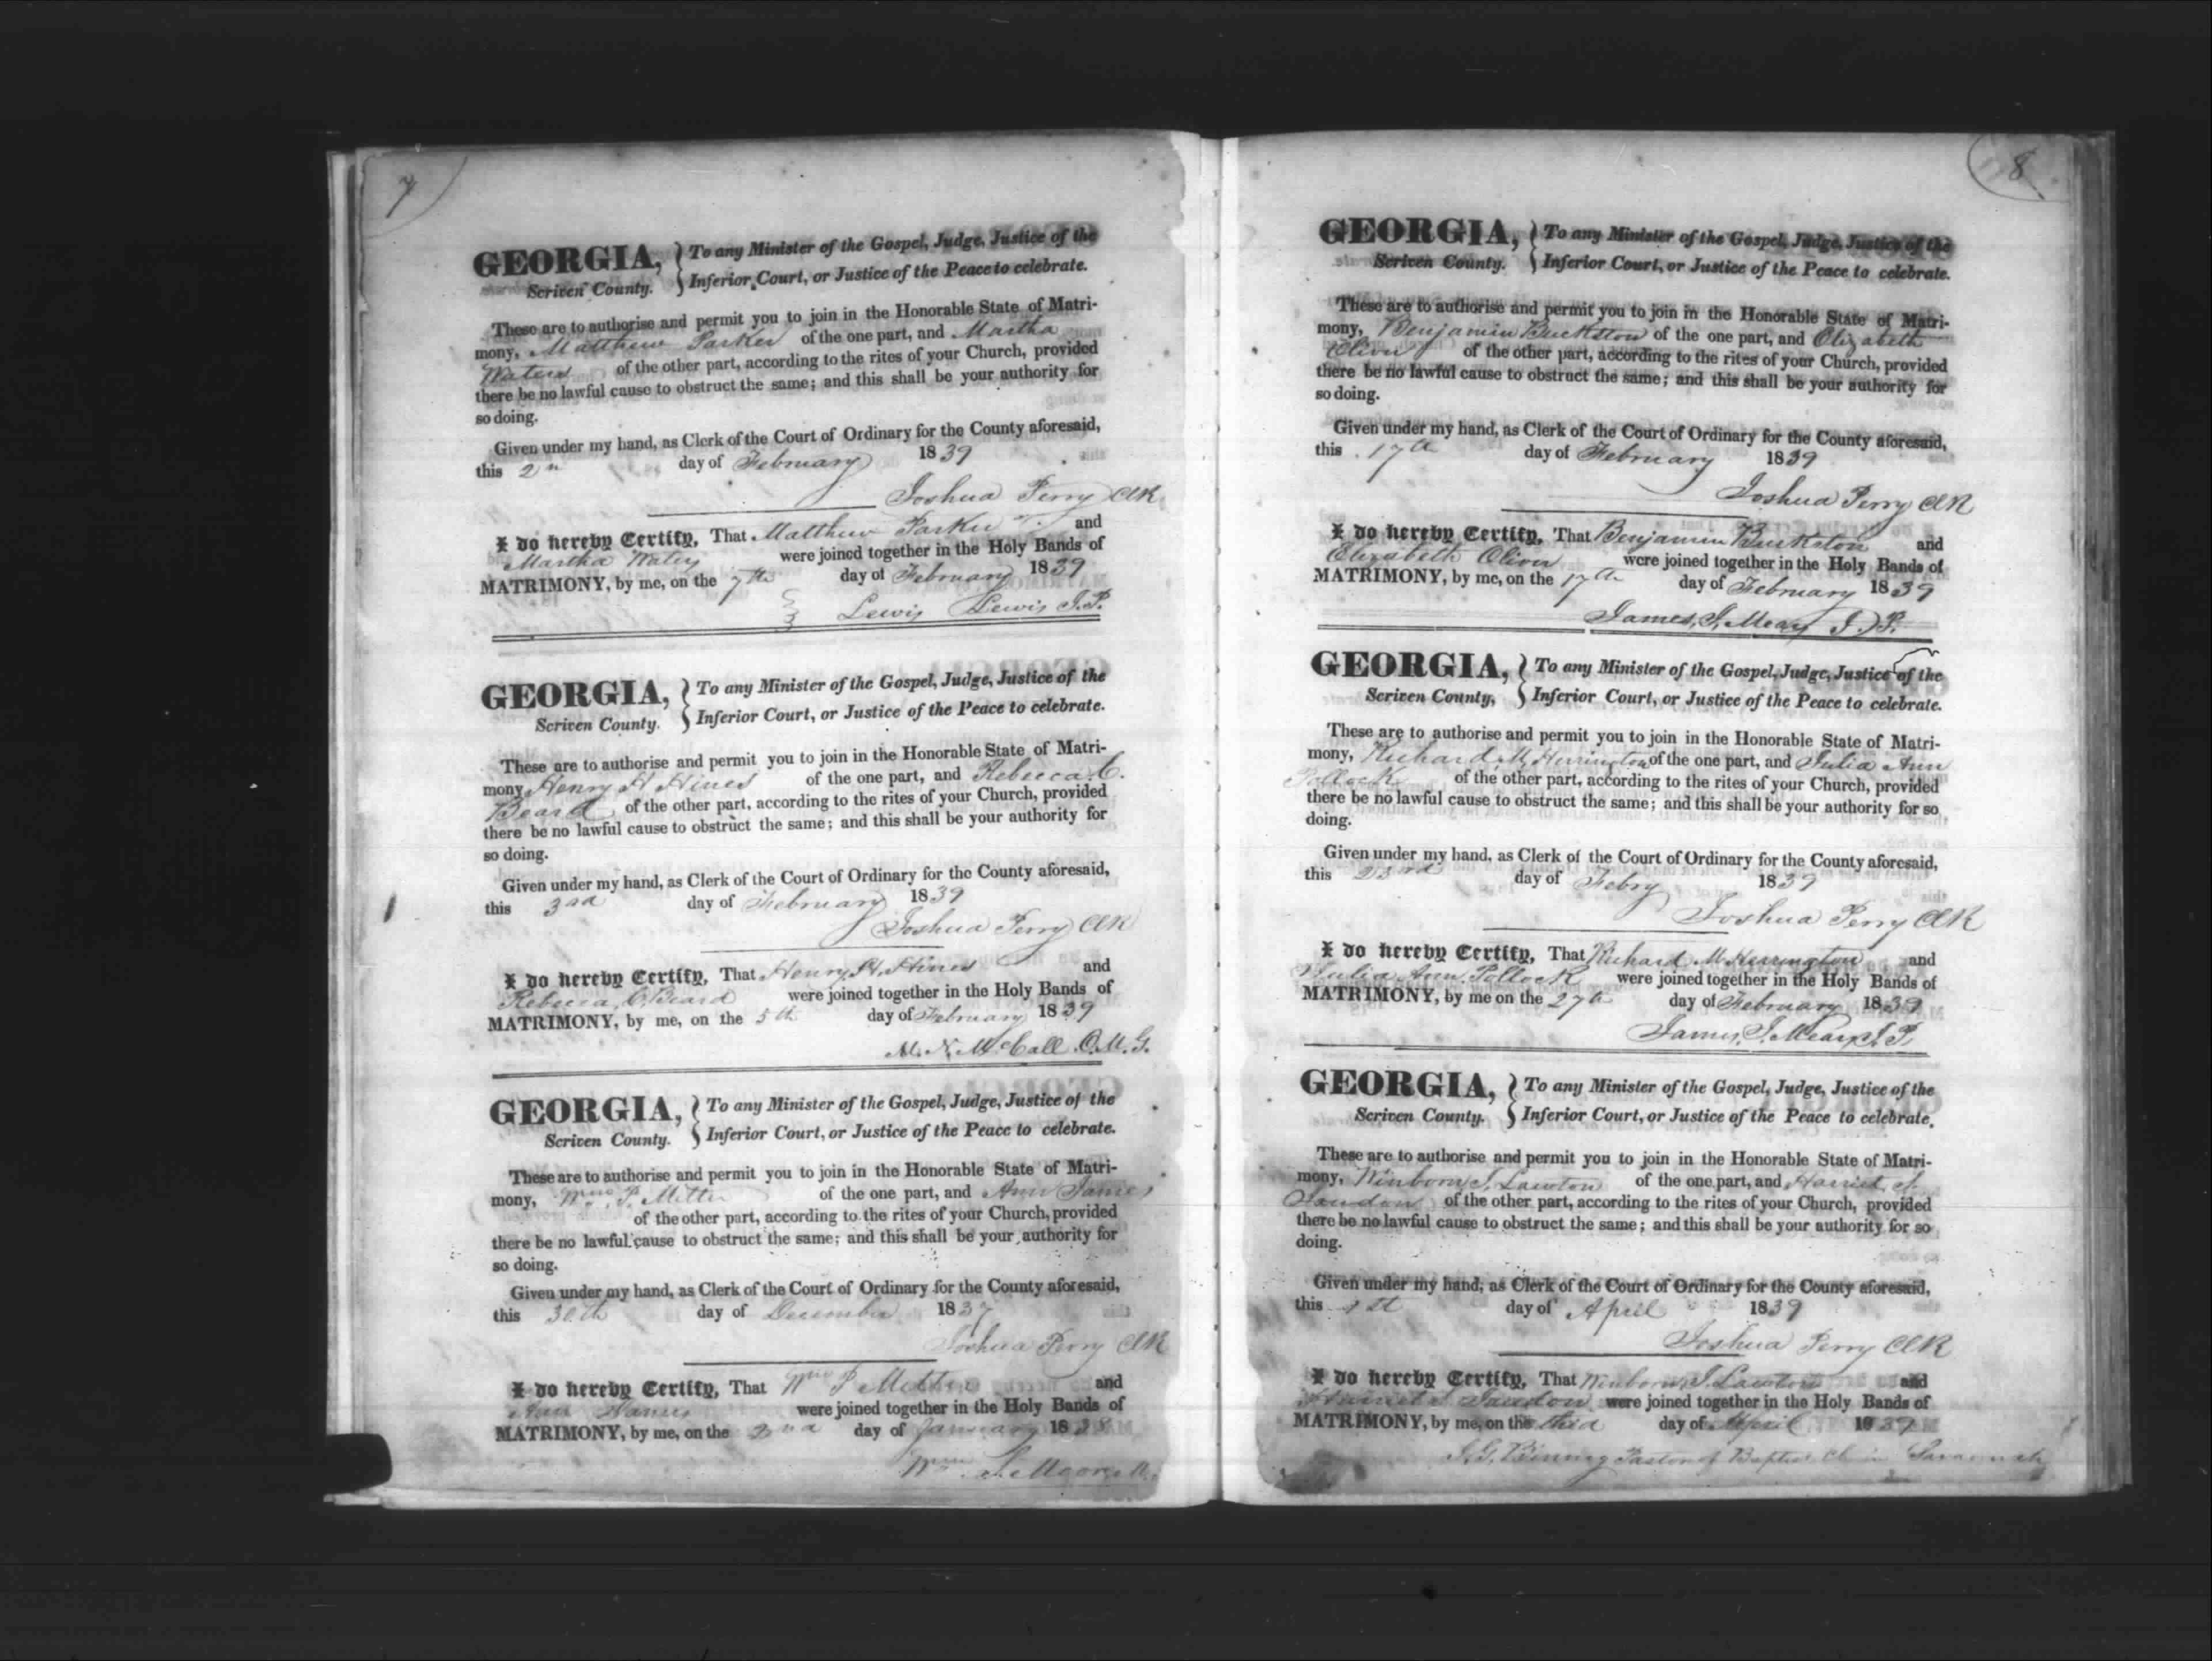 7
GEORGIA, } To any Minister of the Gospel, Judge, Justice of the
Scriven County. } Inferior Court, or Justice of the Peace to celebrate.
These are to authorise and permit you to join in the Honorable State of Matri-
mony, Matthew Parker of the one part, and Martha
Waters of the other part, according to the rites of your Church, provided
there be no lawful cause to obstruct the same; and this shall be your authority for
so doing.
Given under my hand, as Clerk of the Court of Ordinary for the County aforesaid,
this 2n day of February 1839
Joshua Perry Clk
I do hereby Certify, That Matthew Parker and
Martha Waters were joined together in the Holy Bands of
MATRIMONY, by me, on the 7th day of February 1839
Lewis Lewis J.P.
GEORGIA, } To any Minister of the Gospel, Judge, Justice of the
Scriven County. } Inferior Court, or Justice of the Peace to celebrate.
These are to authorise and permit you to join in the Honorable State of Matri-
mony Henry H Hines of the one part, and Rebecca C.
Beard of the other part, according to the rites of your Church, provided
there be no lawful cause to obstruct the same; and this shall be your authority for
so doing.
Given under my hand, as Clerk of the Court of Ordinary for the County aforesaid,
this 3rd day of February 1839
Joshua Perry Clk
I do hereby Certify, That Henry H. Hines and
Rebecca C. Beard were joined together in the Holy Bands of
MATRIMONY, by me, on the 5th day of February 1839
M. N. McCall O.M.G.
GEORGIA, } To any Minister of the Gospel, Judge, Justice of the
Scriven County. } Inferior Court, or Justice of the Peace to celebrate.
These are to authorise and permit you to join in the Honorable State of Matri-
mony, Wm P. of the one part, and Ann James
of the other part, according to the rites of your Church, provided
there be no lawful cause to obstruct the same; and this shall be your authority for
so doing.
Given under my hand, as Clerk of the Court of Ordinary for the County aforesaid,
this 30th day of December 1837
Joshua Perry Clk
I do hereby Certify, That Wm P and
Ann James were joined together in the Holy Bands of
MATRIMONY, by me, on the 2nd day of January 1838
Wm. Moore
8
GEORGIA, } To any Minister of the Gospel, Judge, Justice of the
Scriven County. } Inferior Court, or Justice of the Peace to celebrate.
These are to authorise and permit you to join in the Honorable State of Matri-
mony, Benjamin Buckston of the one part, and Elizabeth
Oliver of the other part, according to the rites of your Church, provided
there be no lawful cause to obstruct the same; and this shall be your authority for
so doing.
Given under my hand, as Clerk of the Court of Ordinary for the County aforesaid,
this 17th day of February 1839
Joshua Perry Clk
I do hereby Certify, That Benjamin Buckston and
Elizabeth Oliver were joined together in the Holy Bands of
MATRIMONY, by me, on the 17th day of February 1839
James J. Mears J.P.
GEORGIA, } To any Minister of the Gospel, Judge, Justice of the
Scriven County, } Inferior Court, or Justice of the Peace to celebrate.
These are to authorise and permit you to join in the Honorable State of Matri-
mony, Richard M Herrington of the one part, and Julia Ann
Pollock of the other part, according to the rites of your Church, provided
there be no lawful cause to obstruct the same; and this shall be your authority for so
doing.
Given under my hand, as Clerk of the Court of Ordinary for the County aforesaid,
this 23rd day of Febry 1839
Joshua Perry Clk
I do hereby Certify, That Richard M Herrington and
Julia Ann Pollock were joined together in the Holy Bands of
MATRIMONY, by me on the 27th day of February 1839
James J. Mears J.P.
GEORGIA, } To any Minister of the Gospel, Judge, Justice of the
Scriven County. } Inferior Court, or Justice of the Peace to celebrate.
These are to authorise and permit you to join in the Honorable State of Matri-
mony, Winborn J. Lawton of the one part, and Harriet
of the other part, according to the rites of your Church, provided
there be no lawful cause to obstruct the same; and this shall be your authority for so
doing.
Given under my hand, as Clerk of the Court of Ordinary for the County aforesaid,
this 1st day of April 1839
Joshua Perry Clk
I do hereby Certify, That Winborn J. Lawton and
Harriet were joined together in the Holy Bands of
MATRIMONY, by me, on the third day of April 1839
J. G. Binney Pastor of Baptist Ch in Savannah